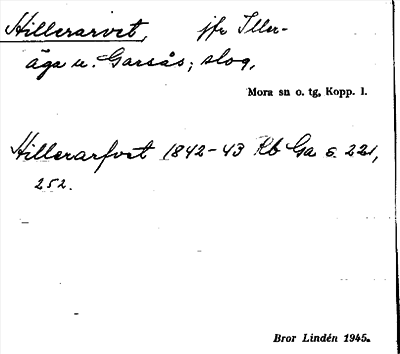 Hillerarvet, jfr Iller-
äga u. Garsås; slog,
Mora sn o. tg, Kopp. l.
Hillerarfvet 1842-43 Kb Ga s. 221,
252.
Bror Lindén 1945.